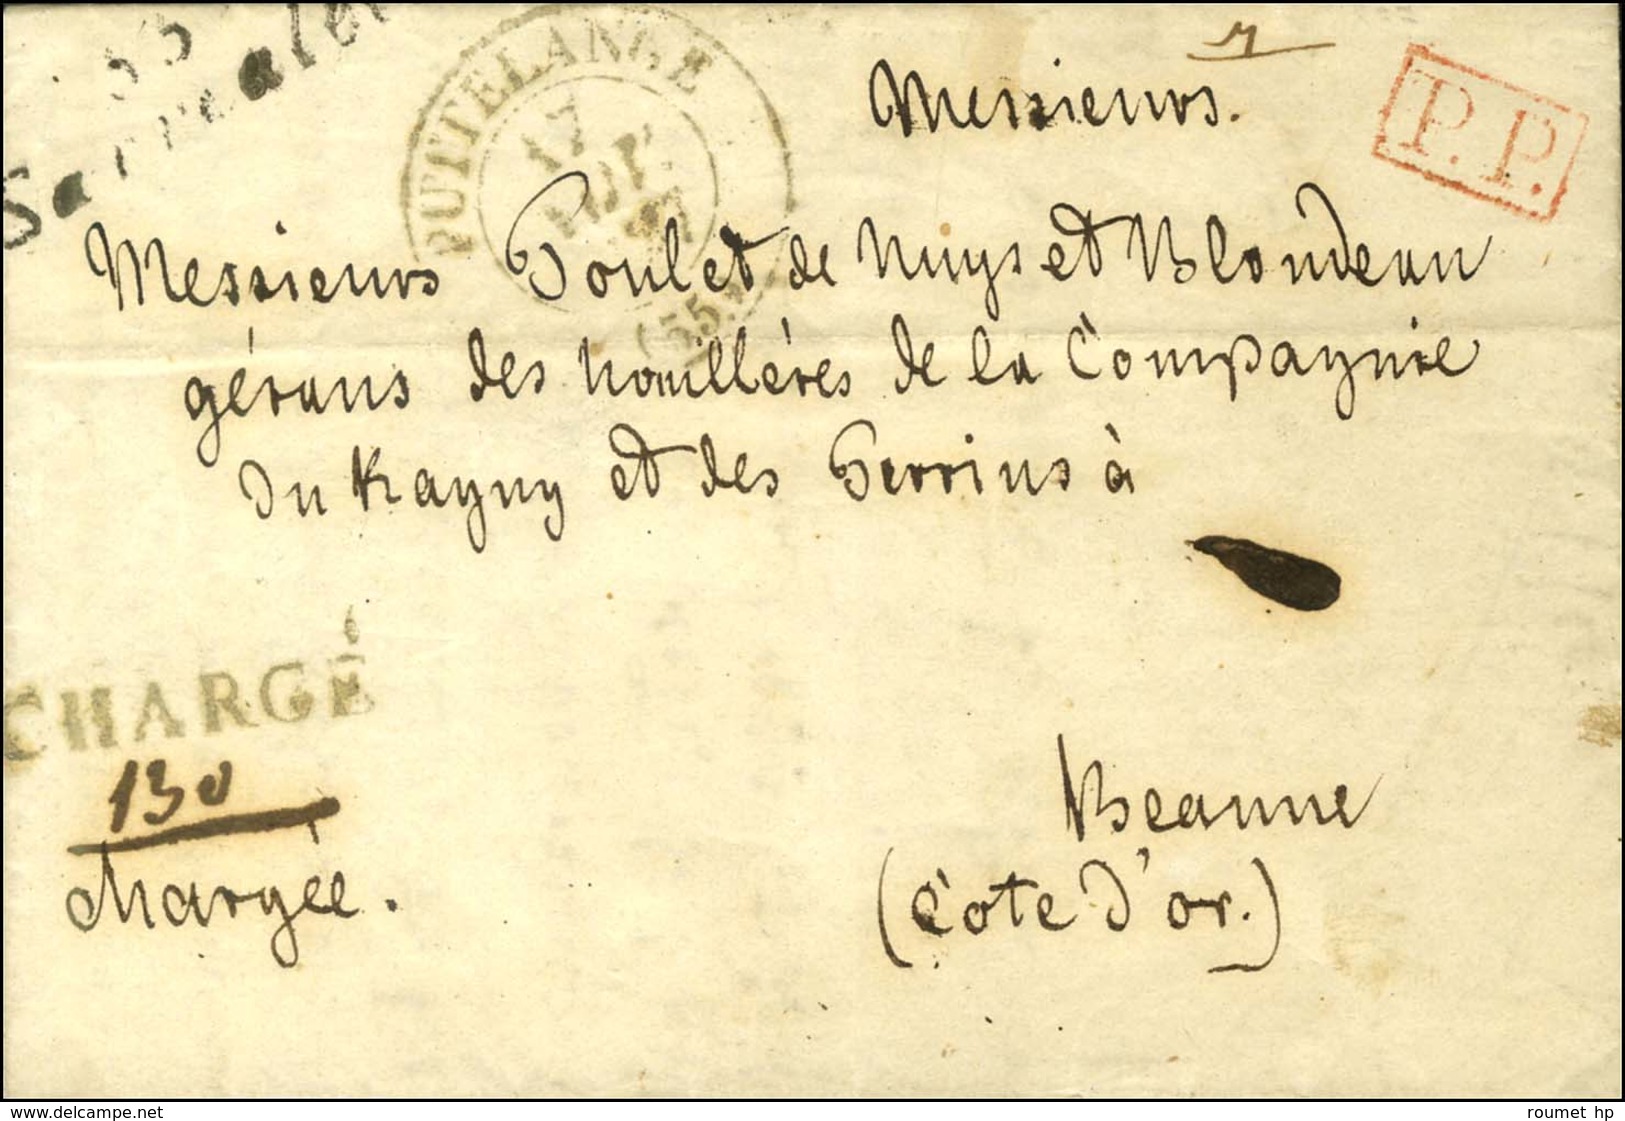 55
Sarralbe
PUTTELANGE
17
(55)
Messieurs.
P.P.
Messieurs Poulet de Nuys et Blondeau
gérans des houillères de la Compagnie
du Ragny et des Perrins à
CHARGÉ
130
chargée.
Beaune
(Côte d'or.)
www.delcampe.net
roumet hp